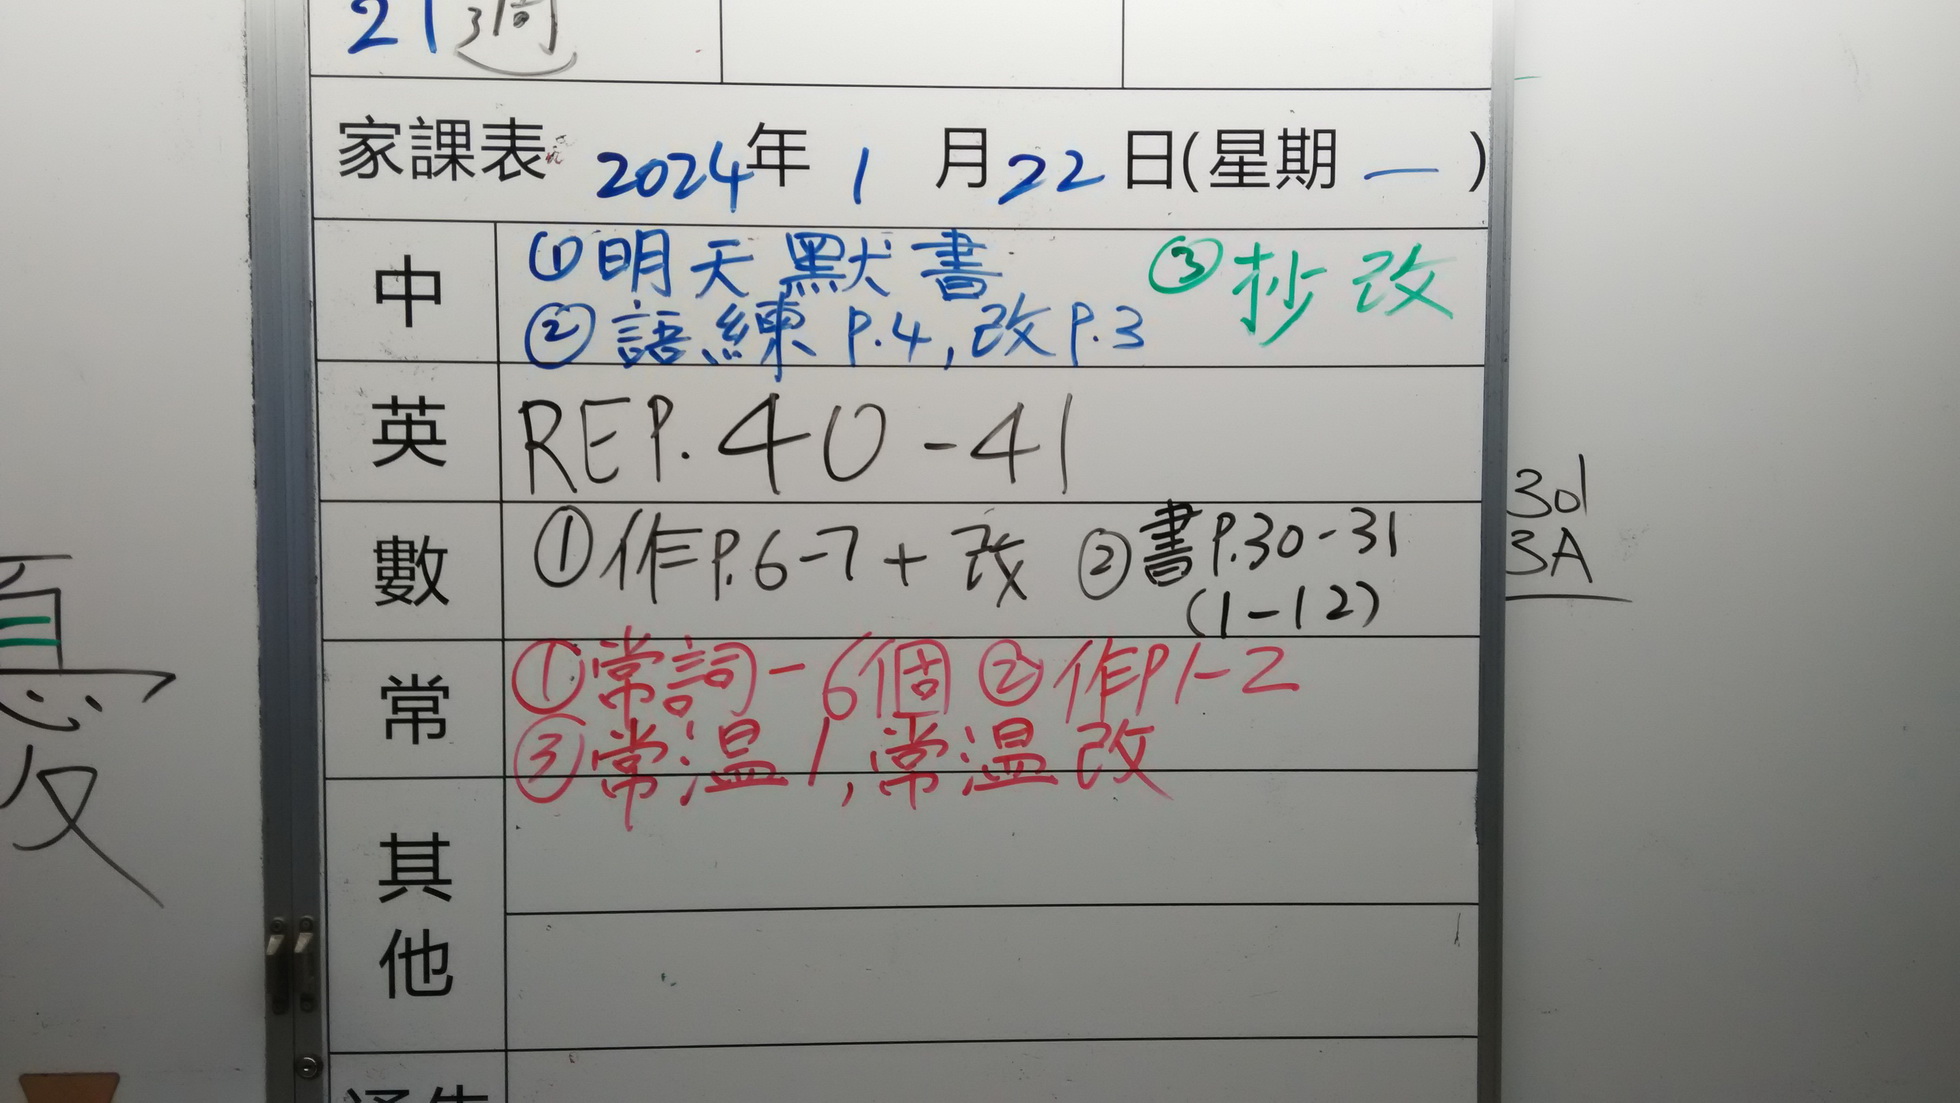 21週
家課表 2024年 1 月 22 日(星期 一 )
中
①明天默書 ③抄改
②語練 P.4, 改P.3
英
REP. 40-41
數
①作P.6-7 + 改 ②書P.30-31
(1-12)
常
①常詞-6個 ②作P1-2
③常溫1, 常溫改
其他
3A